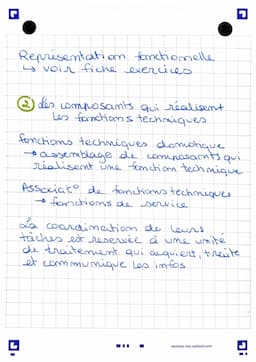 Représentation fonctionnelle
↳ voir fiche exercices
② Les composants qui réalisent
les fonctions techniques
fonctions techniques domotique
→ assemblage de composants qui
réalisent une fonction technique
Associat° de fonctions techniques
→ fonctions de service
La coordination de leurs
tâches est reservée à une unité
de traitement qui acquiert, traite
et communique les infos